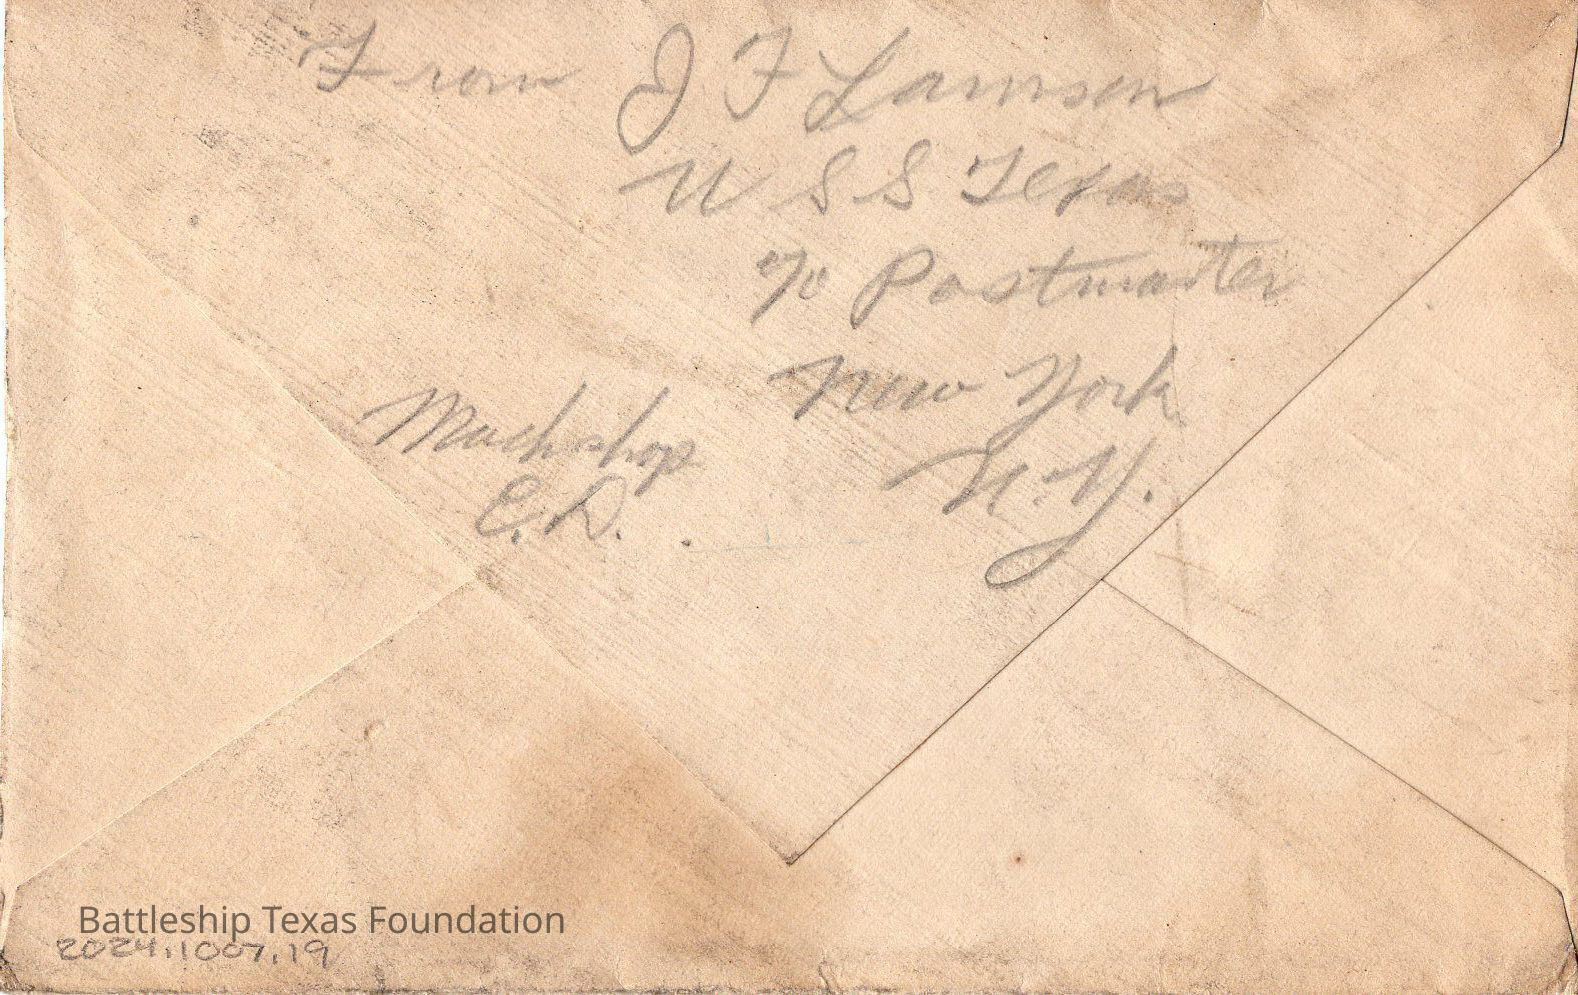 From J F Lamson
U S S Texas
c/o Postmaster
New York
N.Y.
Machshop
E.D.
Battleship Texas Foundation
2024.1007.19